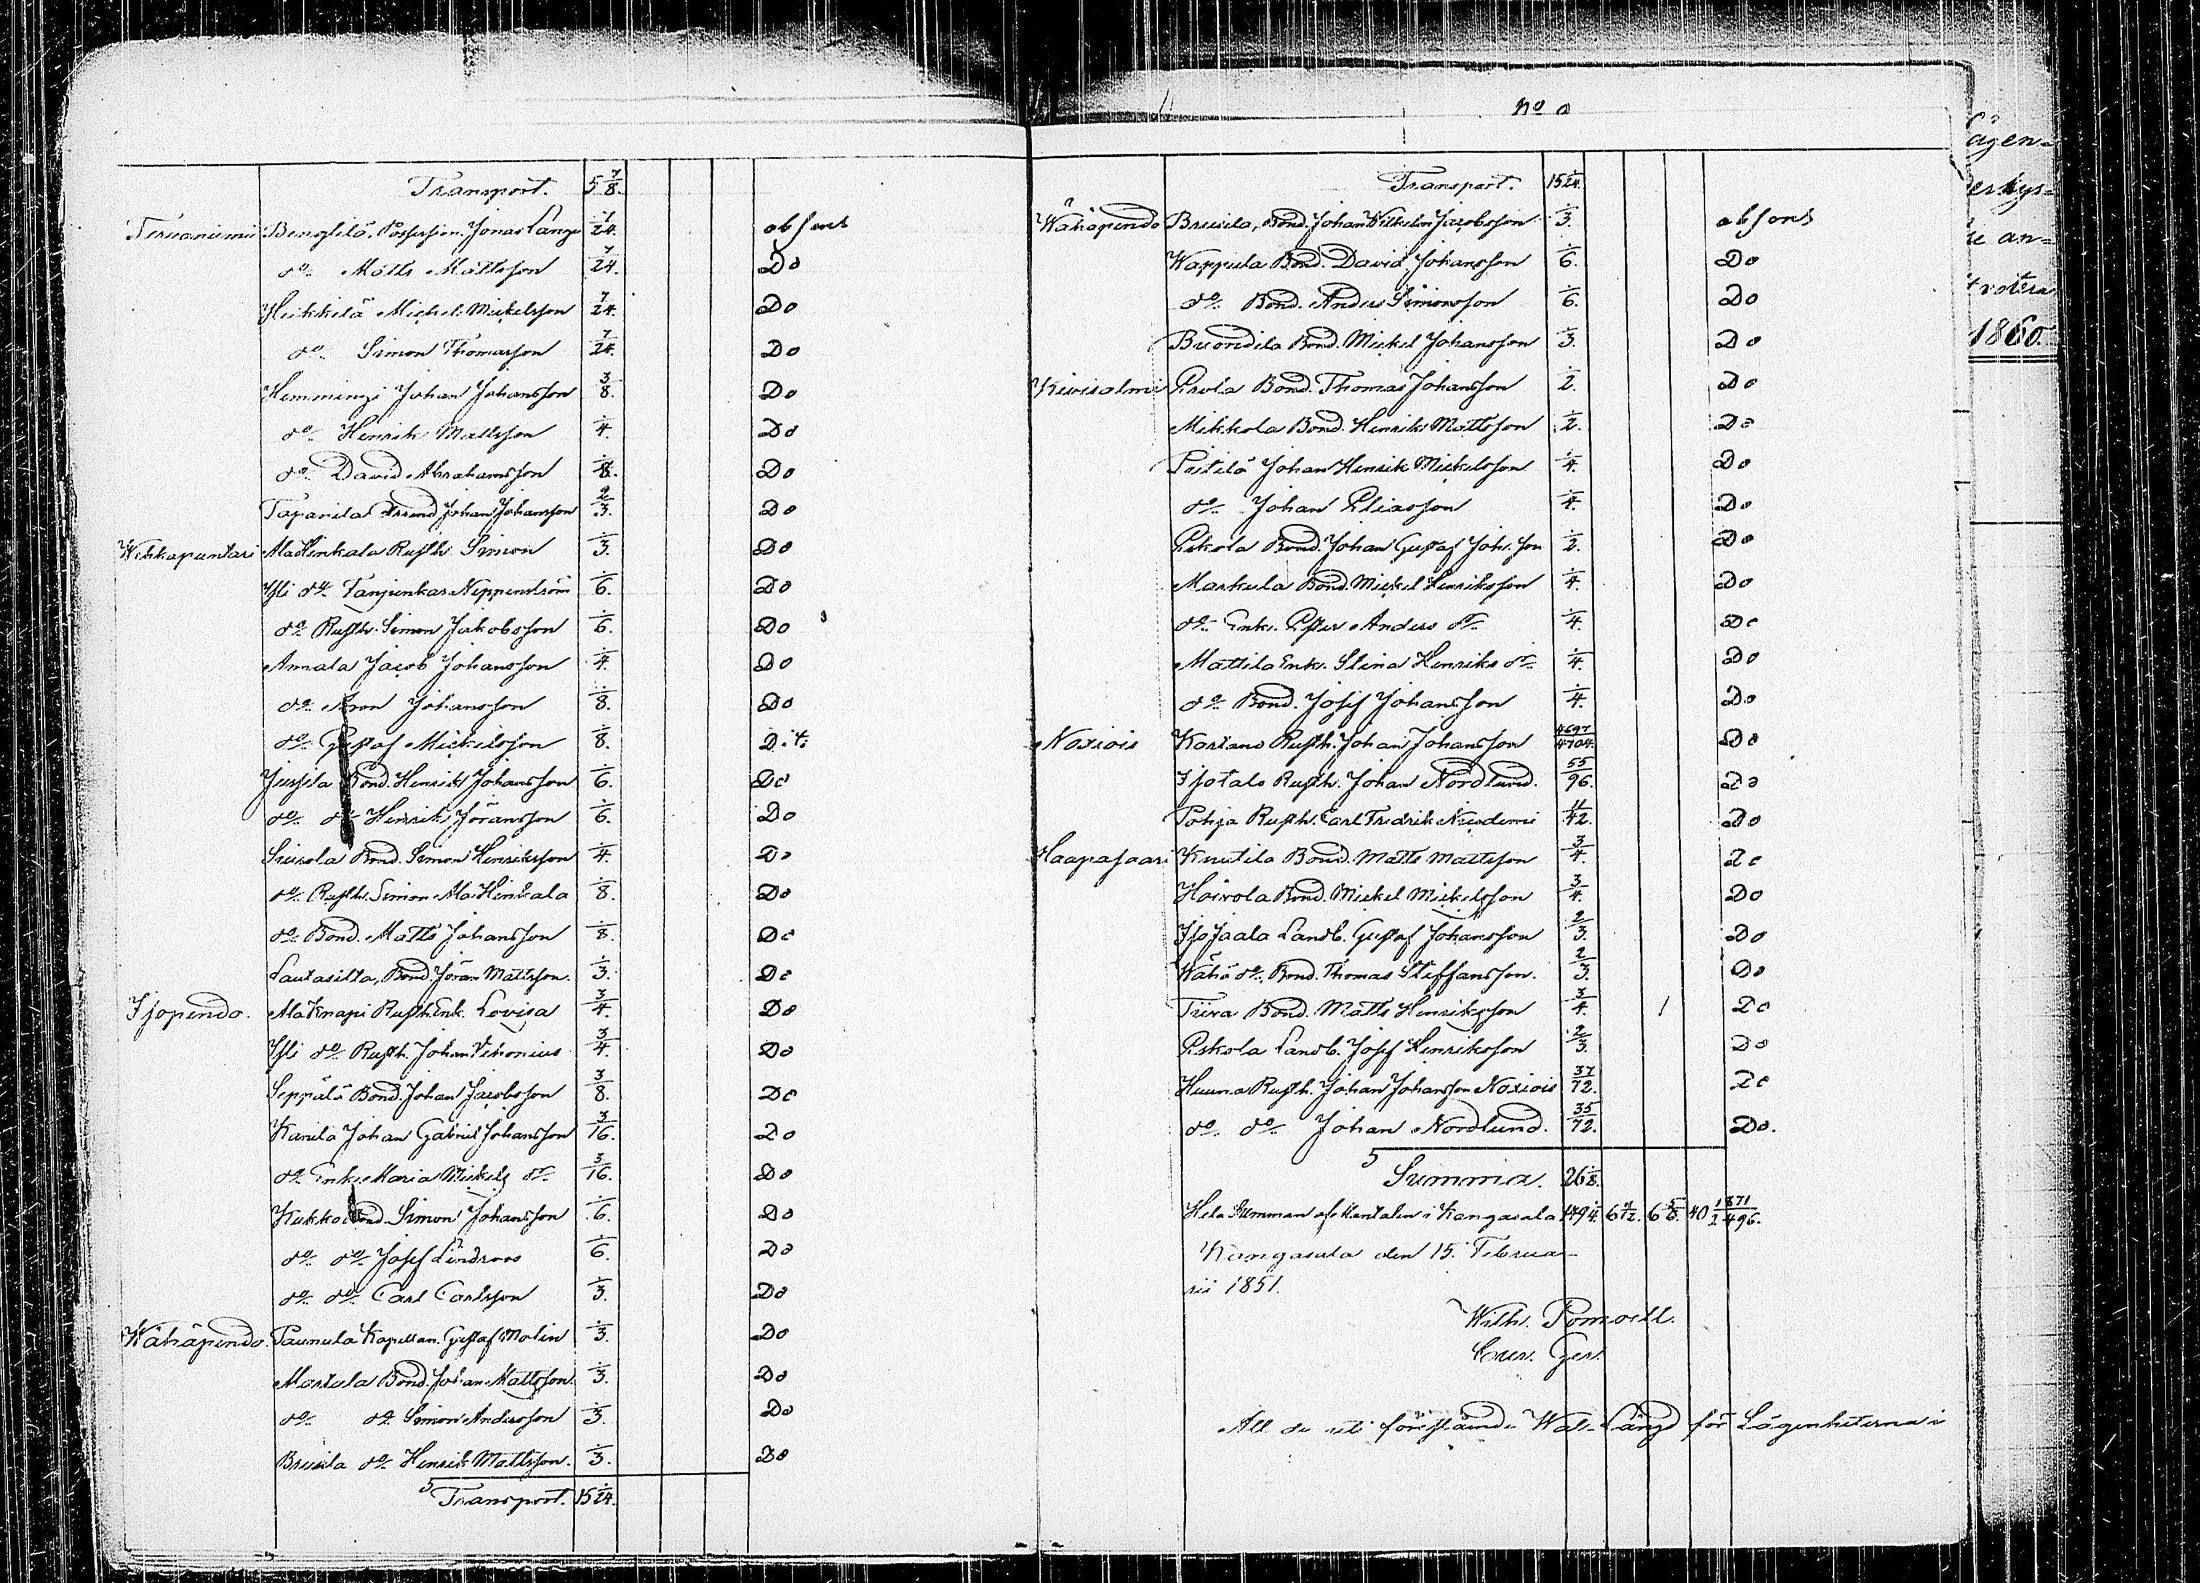 Transport. 5 7/8.
Bengtilä, Possession. Jonas Lange 1/24. absent
do Matts Mattsson 7/24. Do
Heikkilä Michel Mickelsson 7/24. Do
do Simon Thomasson 7/24. Do
Hemmingi Johan Johansson 3/8. Do
do Henrik Mattsson 1/4. Do
do David Abrahamsson Do
Tapanila Johan Johansson 2/3. Do
Wehkapuntari AlaHinkala Rusth. Simon 1/3. Do
Yli do Fanjunkar Neppenström 1/6. Do
do Rusth. Simon Jakobsson 1/6. Do
Annala Jacob Johansson 1/4. Do
do Aron Johansson 1/8. Do
do Gustaf Mickelsson 1/8. Dito
Jussila Bond. Henrik Johansson 1/6. Do
do do Henrik Jöransson 1/6. Do
Sierola Bond. Simon Henriksson 1/4. Do
do Rusth. Simon AlaHinkala 1/8. Do
do Bond. Matts Johansson 1/8. Do
Lautasilta, Bond. Jöran Mattsson. 1/3. Do
Isopendo. AlaKnapi Rusth. Enk. Lovisa 3/4. Do
Yli do Rusth. Johan 3/4. Do
Seppälä Bond. Johan Jacobsson 3/8. Do
Karula Johan Gabriel Johansson 3/16. Do
do Enk. Maria Mickels dr 3/16. Do
Kukko Bond. Simon Johansson 1/6. Do
do do Josef Lindroos 1/6. Do
do do Carl Carlsson 1/3. Do
Wähäpendo. Paunula Kapellan. Gustaf Molin 1/3. Do
Martala Bond. Johan Mattsson. 1/3. Do
do do Simon Andersson 1/3. Do
Breusila do Henrik Mattsson. 1/3. Do
Transport. 15 1/24.
No
Transport. 15 1/24.
Wähäpendo Breusila, Bond. Johan Wilhelm Jacobsson 1/3. absent
Wappula Bond. David Johansson 1/6. Do
do Bond. Anders Simonsson 1/6. Do
Bond. Mickel Johansson 1/3. Do
Kivisalmi Erola Bond. Thomas Johansson 1/2. Do
Mikkola Bond. Henrik Mattsson 1/2. Do
Johan Henrik Mickelsson 1/4. Do
do Johan Eliasson 1/4. Do
Eskola Bond. Johan Gustaf Joh:son 1/2. Do
Markula Bond. Mickel Henriksson 1/4. Do
do Enk. Ester Anders dr 1/4. Do
Mattila Enk. Stina Henriks dr 1/4. Do
do Bond. Josef Johansson 1/4. Do
Noxiois Kartano Rusth. Johan Johansson 4697/4704. Do
Isotalo Rusth. Johan Nordlund. 55/96. Do
Pohja Rusth. Carl Fredrik 11/42. Do
Haapasaari Knutila Bond. Matts Mattsson 3/4. Do
Hoivola Bond. Mickel Mickelsson 3/4. Do
IsoJaala Landb. Gustaf Johansson 2/3. Do
Wähä do Bond. Thomas Steffansson. 2/3. Do
Tiira Bond. Matts Henriksson 3/4. Do
Eskola Landb. Josef Henriksson 2/3. Do
Huuna Rusth. Johan Johansson Noxiois 37/72. Do
do do Johan Nordlund. 35/72. Do.
Summa. 26 1/8.
Hela Summan af Mantalen i Kangasala
Kangasala den 15. Februa-
rii 1851.
Wilh. Pomoell.
All de uti förestående Wal-Längd för Lägenheterna i
Lägen-
an-
rotera
1860.